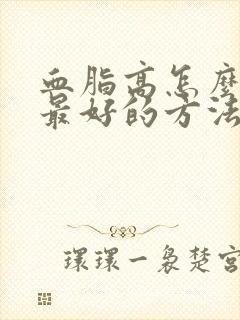 血脂高怎麼
最好的方法
環環一裊楚宮